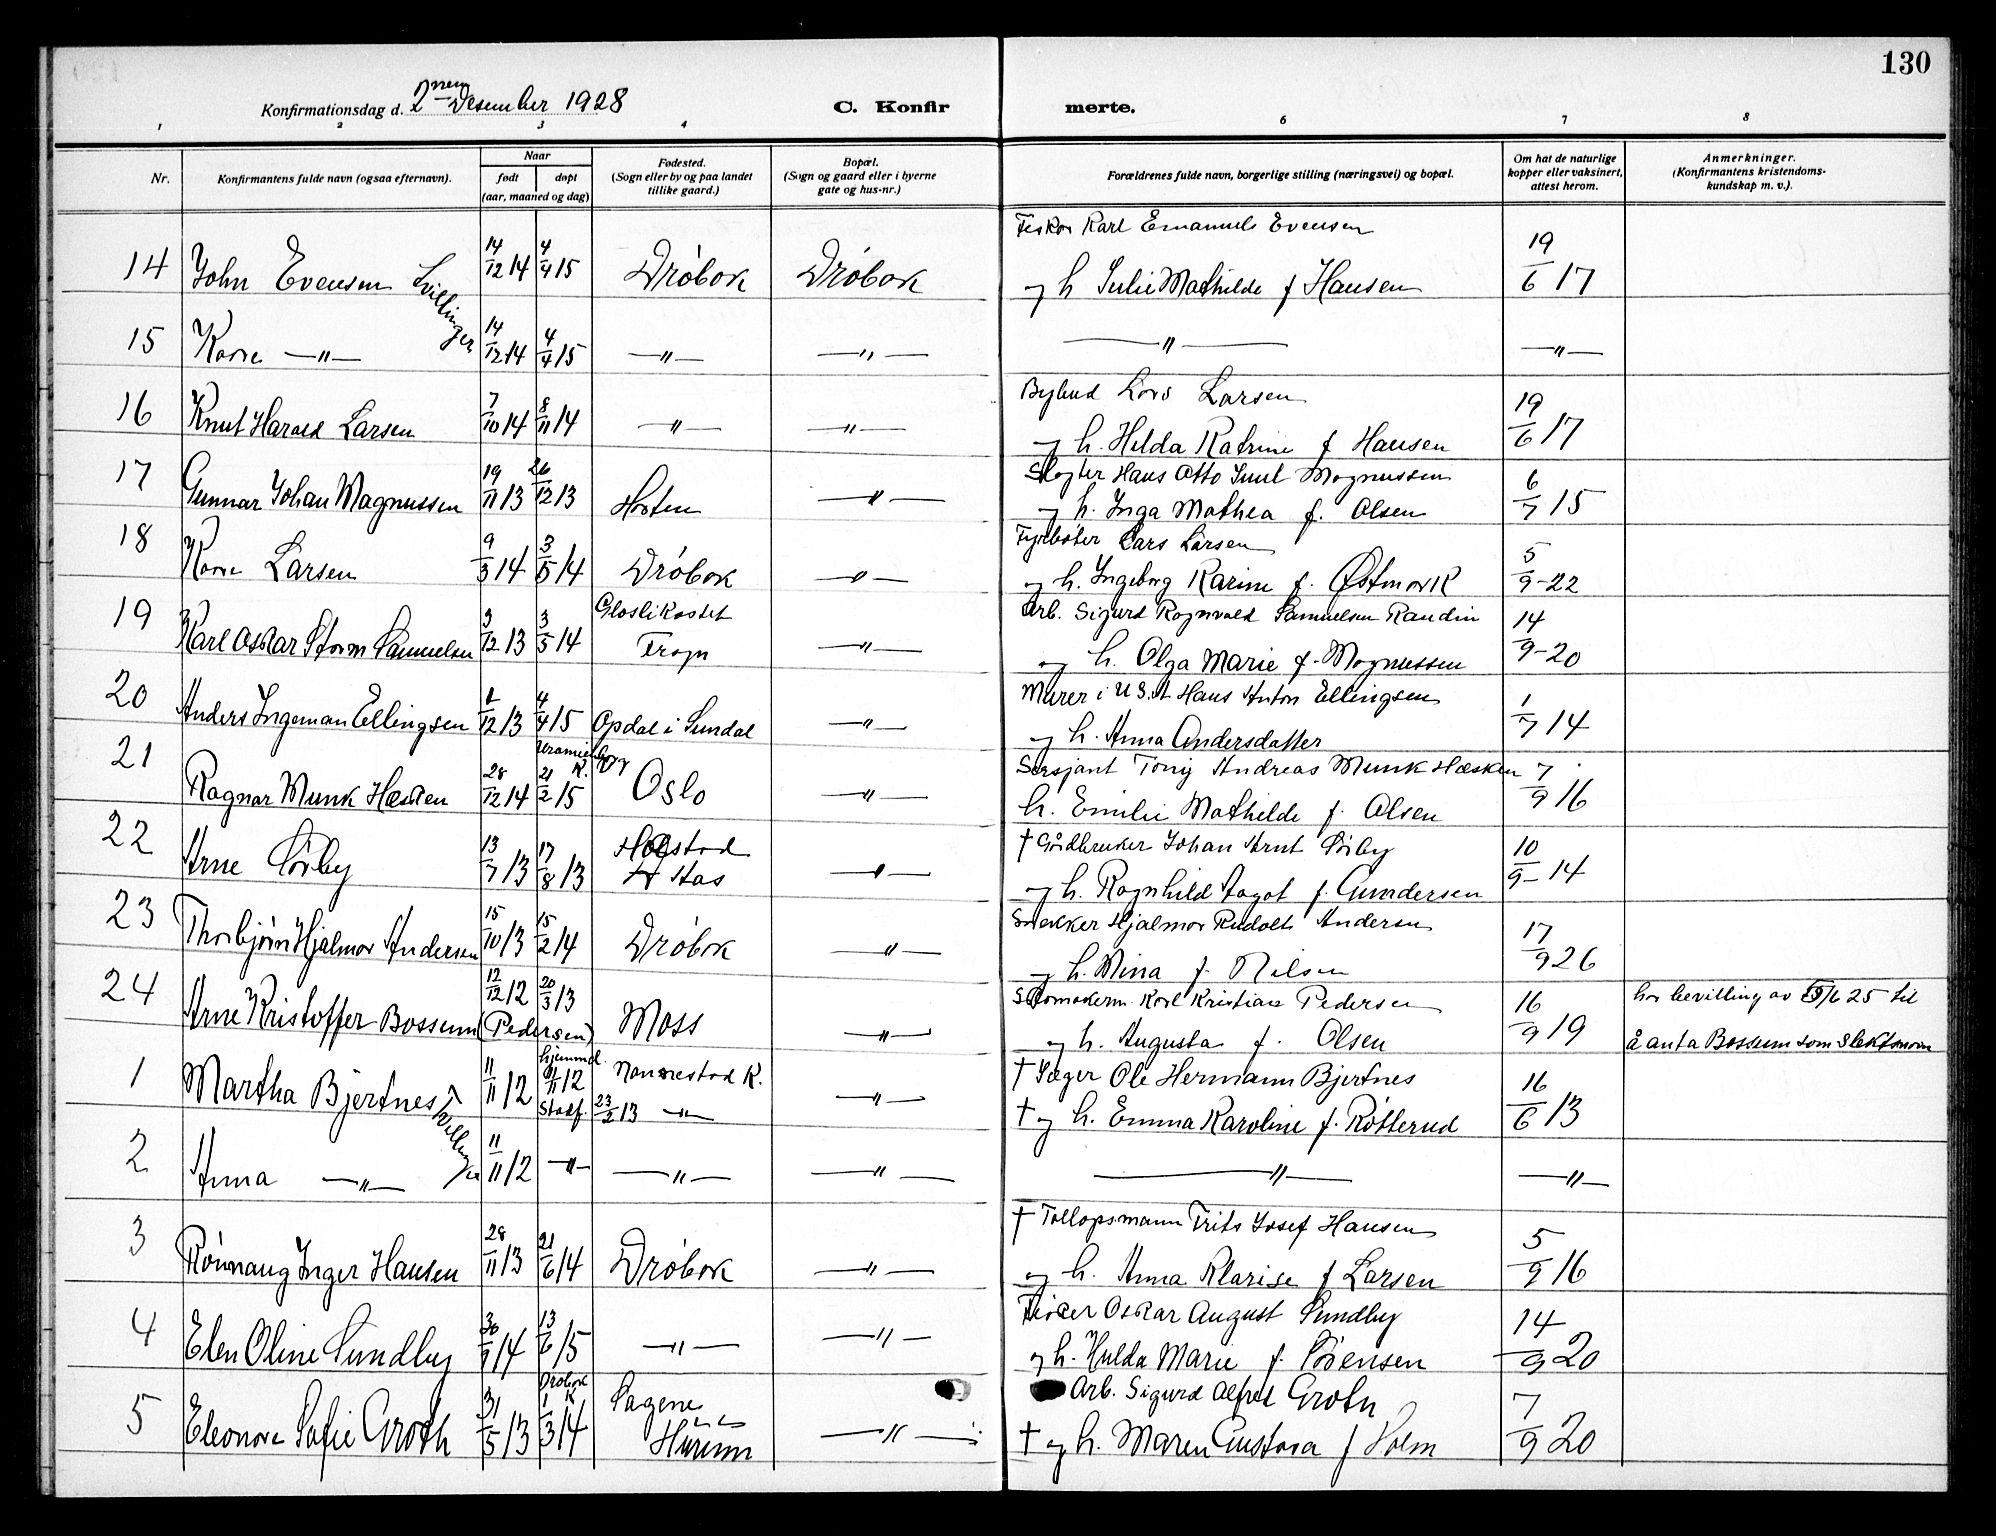 130
Konfirmationsdag d. 2nen Desember 1928
C. Konfir merte.
1 2 3 4 6 7 8
Nr.
Konfirmantens fulde navn (ogsaa efternavn).
Naar
født døpt
(aar, maaned og dag)
Fødested.
(Sogn eller by og paa landet
tillike gaard.)
Bopæl.
(Sogn og gaard eller i byerne
gate og hus-nr.)
Forældrenes fulde navn, borgerlige stilling (næringsvei) og bopæl.
Om hat de naturlige
kopper eller vaksinert,
attest herom.
Anmerkninger.
(Konfirmantens kristendoms-
kundskap m. v.).
Fisker Karl Emanuel Evensen
14 John Evensen Tvillinger 14/12 14 4/4 15 Drøbak Drøbak og h Julie Mathilde f Hansen 19/6 17
15 Kåre —"— 14/12 14 4/4 15 —"— —"— —"— —"—
Bybud Lars Larsen
16 Knut Harald Larsen 7/10 14 8/11 14 —"— —"— og h. Hilda Katrine f Hansen 19/6 17
Slagter Hans Otto Magnussen
17 Gunnar Johan Magnussen 19/11 13 26/12 13 Horten —"— og h. Inga Mathea f. Olsen 6/7 15
Fyrbøter Lars Larsen
18 Kåre Larsen 9/3 14 3/5 14 Drøbak —"— og h. Ingeborg Karine f. Østmork 5/9-22
Gloslikastet Arb. Sigurd Ragnvald Samuelsen Raudin
19 Karl Oskar Storm Samuelsen 3/12 13 3/5 14 Frogn —"— og h. Olga Marie f. Magnussen 14/9-20
Murer i U S A Hans Anton Ellingsen
20 Anders Ingeman Ellingsen 1/12 13 4/4 15 Opdal i Sundal —"— og h. Anna Andersdatter 1/7 14
Uranienborg K. Sersjant Tonny Andreas Munk Hæsken
21 Ragnar Munk Hæsken 28/12 14 21/2 15 Oslo —"— h. Emilie Mathilde f. Olsen 7/9 16
† Gårdbruker Johan Arnt Sørby
22 Arne Sørby 13/7 13 17/8 13 Ås —"— og h. Ragnhild Aagot f. Gundersen 10/9-14
Snekker Hjalmar Rudolf Andersen
23 Thorbjørn Hjalmar Andersen 15/10 13 15/2 14 Drøbak —"— og h. Mina f. Nilsen 17/9 26
Skomakerm. Karl Kristian Pedersen har bevilling av 15/6 25 til
24 Arne Kristoffer Bossum (Pedersen) 12/12 12 20/3 13 Moss —"— og h. Augusta f. Olsen 16/9 19 å anta Bossum som slektsnavn
hjemmd. Nannestad K. † Sager Ole Hermann Bjertnes
1 Martha Bjertnes Tvillinger 11/11 12 11 12 Stadf. 23/2 13 —"— —"— † og h. Emma Karoline f. Røtterud 16/6 13
2 Anna —"— 11/11 12 —"— —"— —"— —"— —"—
† Tollopsmann Frits Josef Hansen
3 Rønnaug Inger Hansen 28/11 13 21/6 14 Drøbak —"— og h. Anna Klarise f Larsen 5/9 16
Fisker Oskar August Sundby
4 Elen Oline Sundby 30/9 14 13/6 15 —"— —"— og h. Hulda Marie f. Sørensen 14/9 20
Drøbak K Sagene Arb. Sigurd Alfred Groth
5 Eleonore Sofie Groth 31/5 13 1/3 14 Hurum —"— † og h. Maren Gustava f Holm 7/9 20